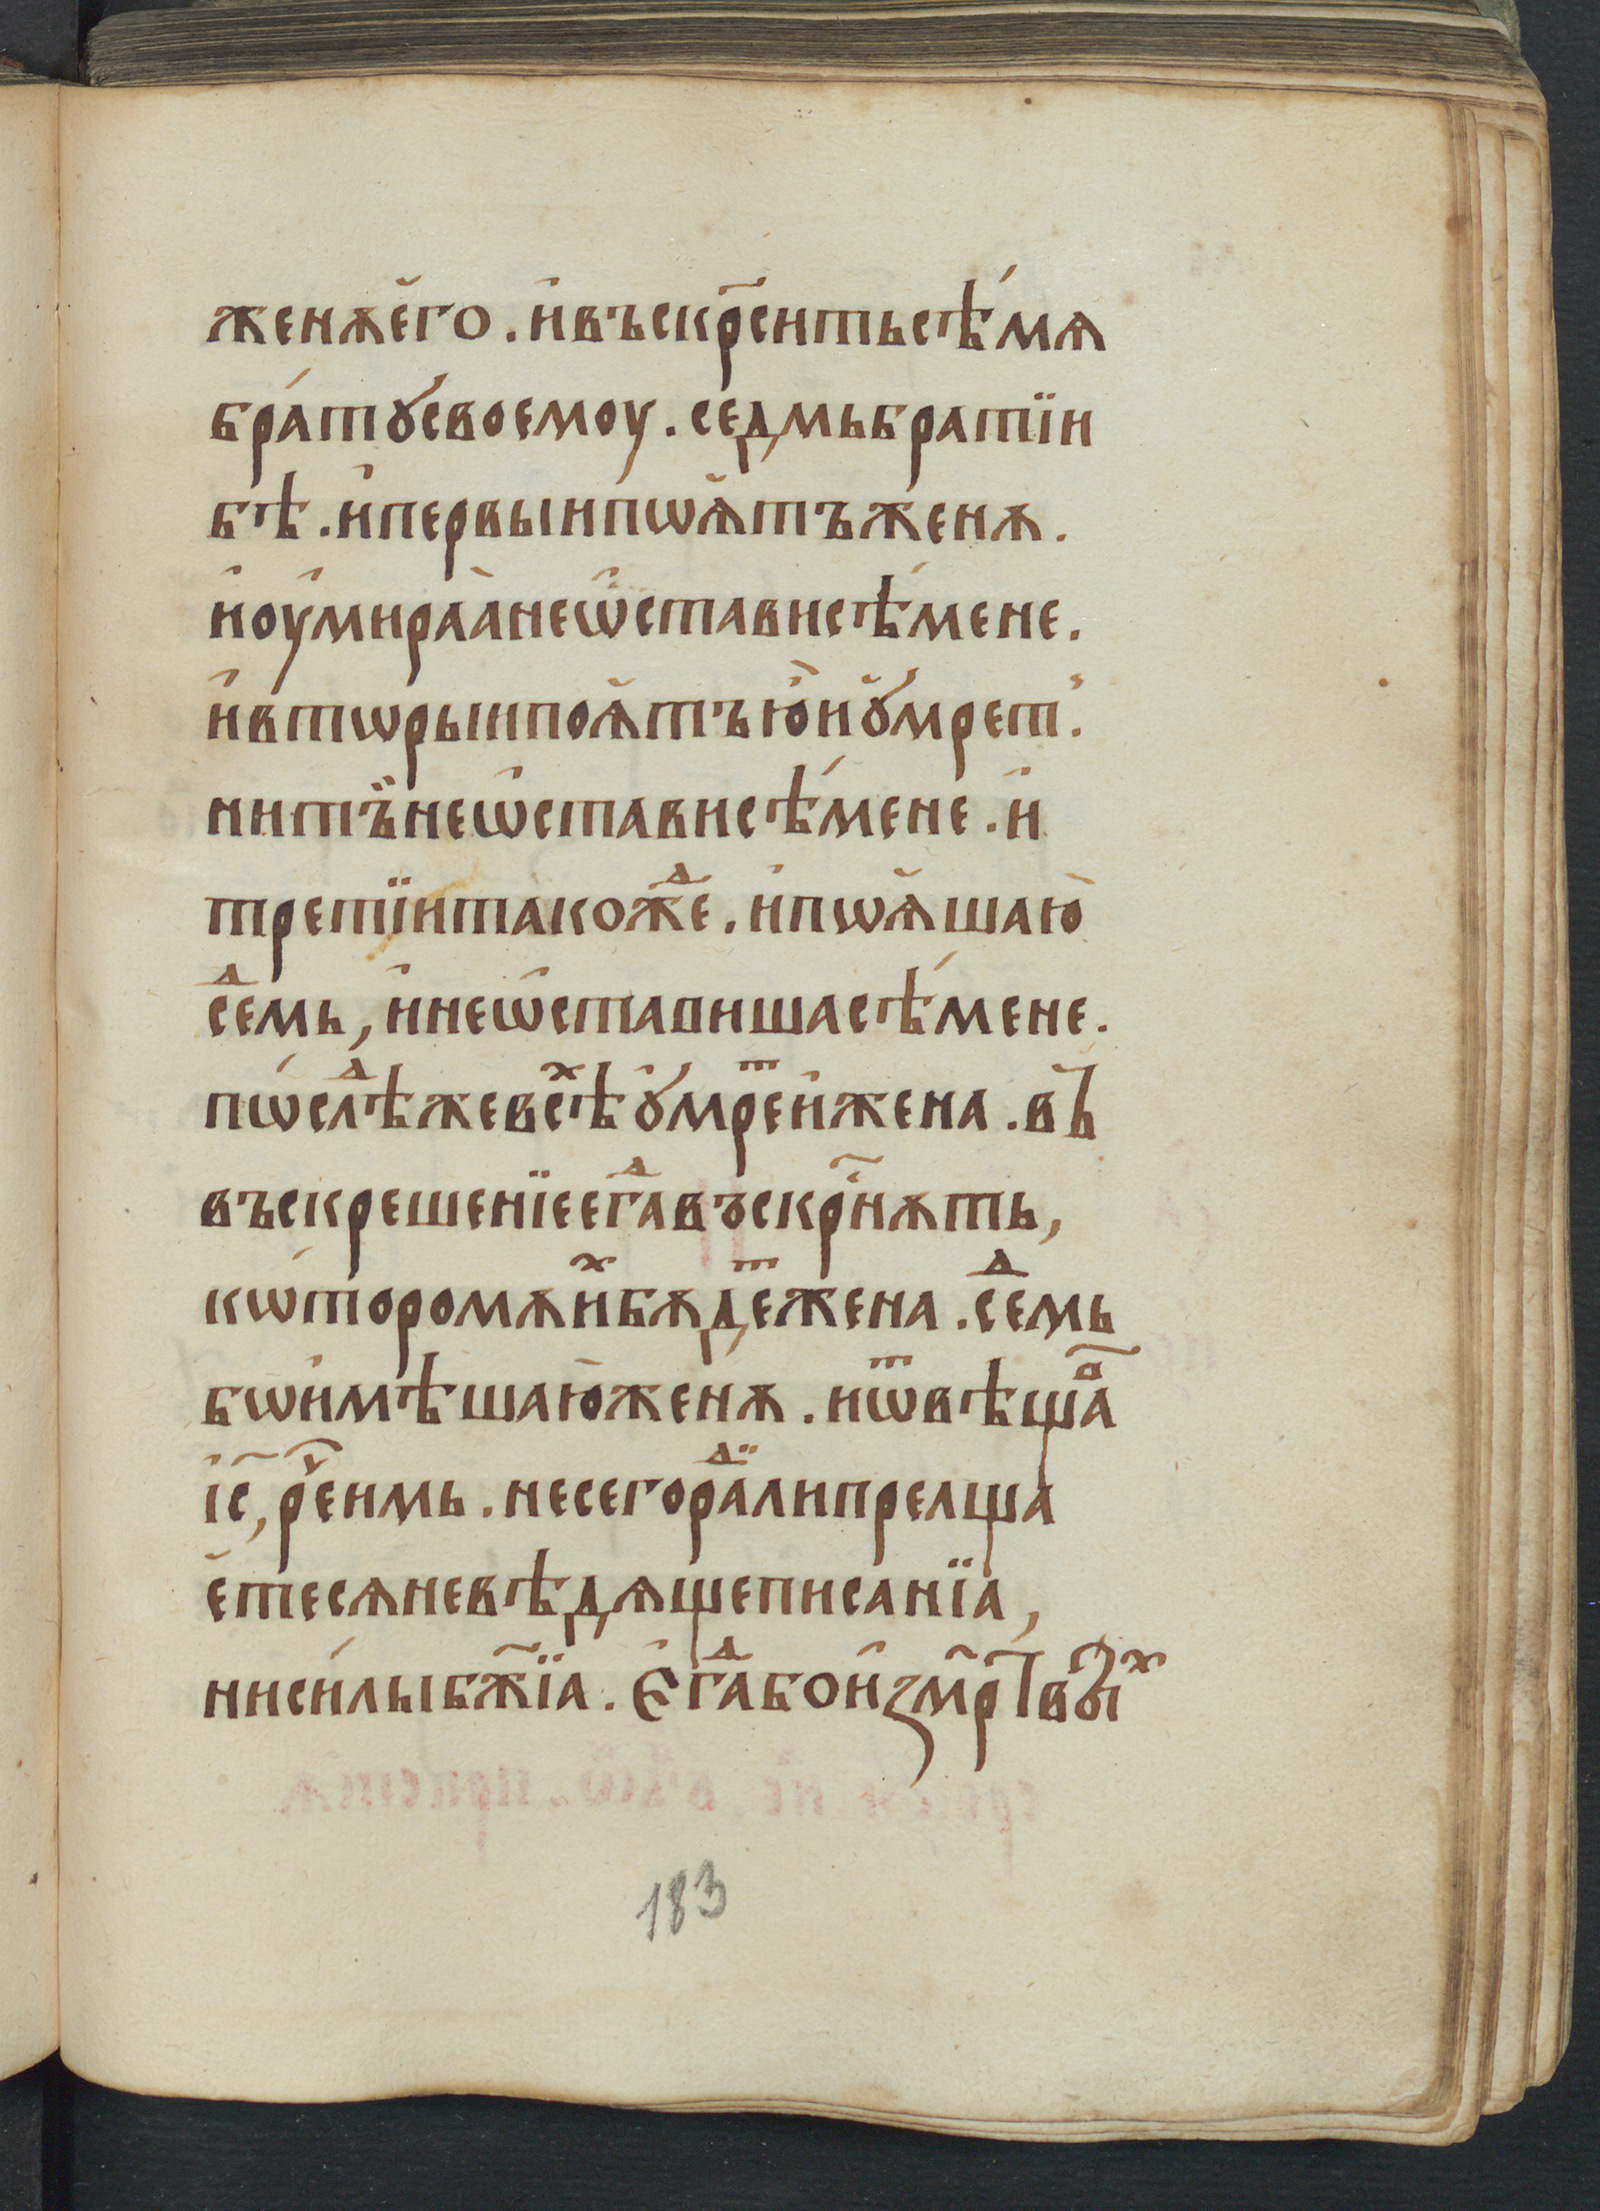 женѫ҆его . и҆въскр҃ситьсѣ́мѧ
бра́тꙋ́своемоу . седмьбратїи
бѣ . и҆первыипѡѧ҆тъженѫ .
и҆оу҆мираꙗ̀неѡ҆стависѣ́мене .
и҆втѡрыипоѧ҆тъю҆и҆ꙋ҆мрет .
нитъ́и҆неѡ҆стависѣ́мене . и҆
третїитакоⷤде . и҆пѡѧ҆шаю҆
сеⷣмь , и҆неѡ҆ставишасѣ́мене .
пѡ́слѣⷣжевсѣⷯꙋ҆мреⷮи҆жена . въ
въскрешенїеегⷣавъскр҃нѫть ,
кѡ́торомѫи҆ⷯбѫдеⷮжена . сеⷣмь
бѡи҆мѣшаю҆женѫ . иѿвѣщаⷭ҇
і҆с҃ , реⷱ҇имь . несегораⷣлипрелща
е҆тесѧневѣдѧщеписанїа ,
ниси́лыбж҃їа . Є҆гⷣабои҆змр҃твыⷯ
183